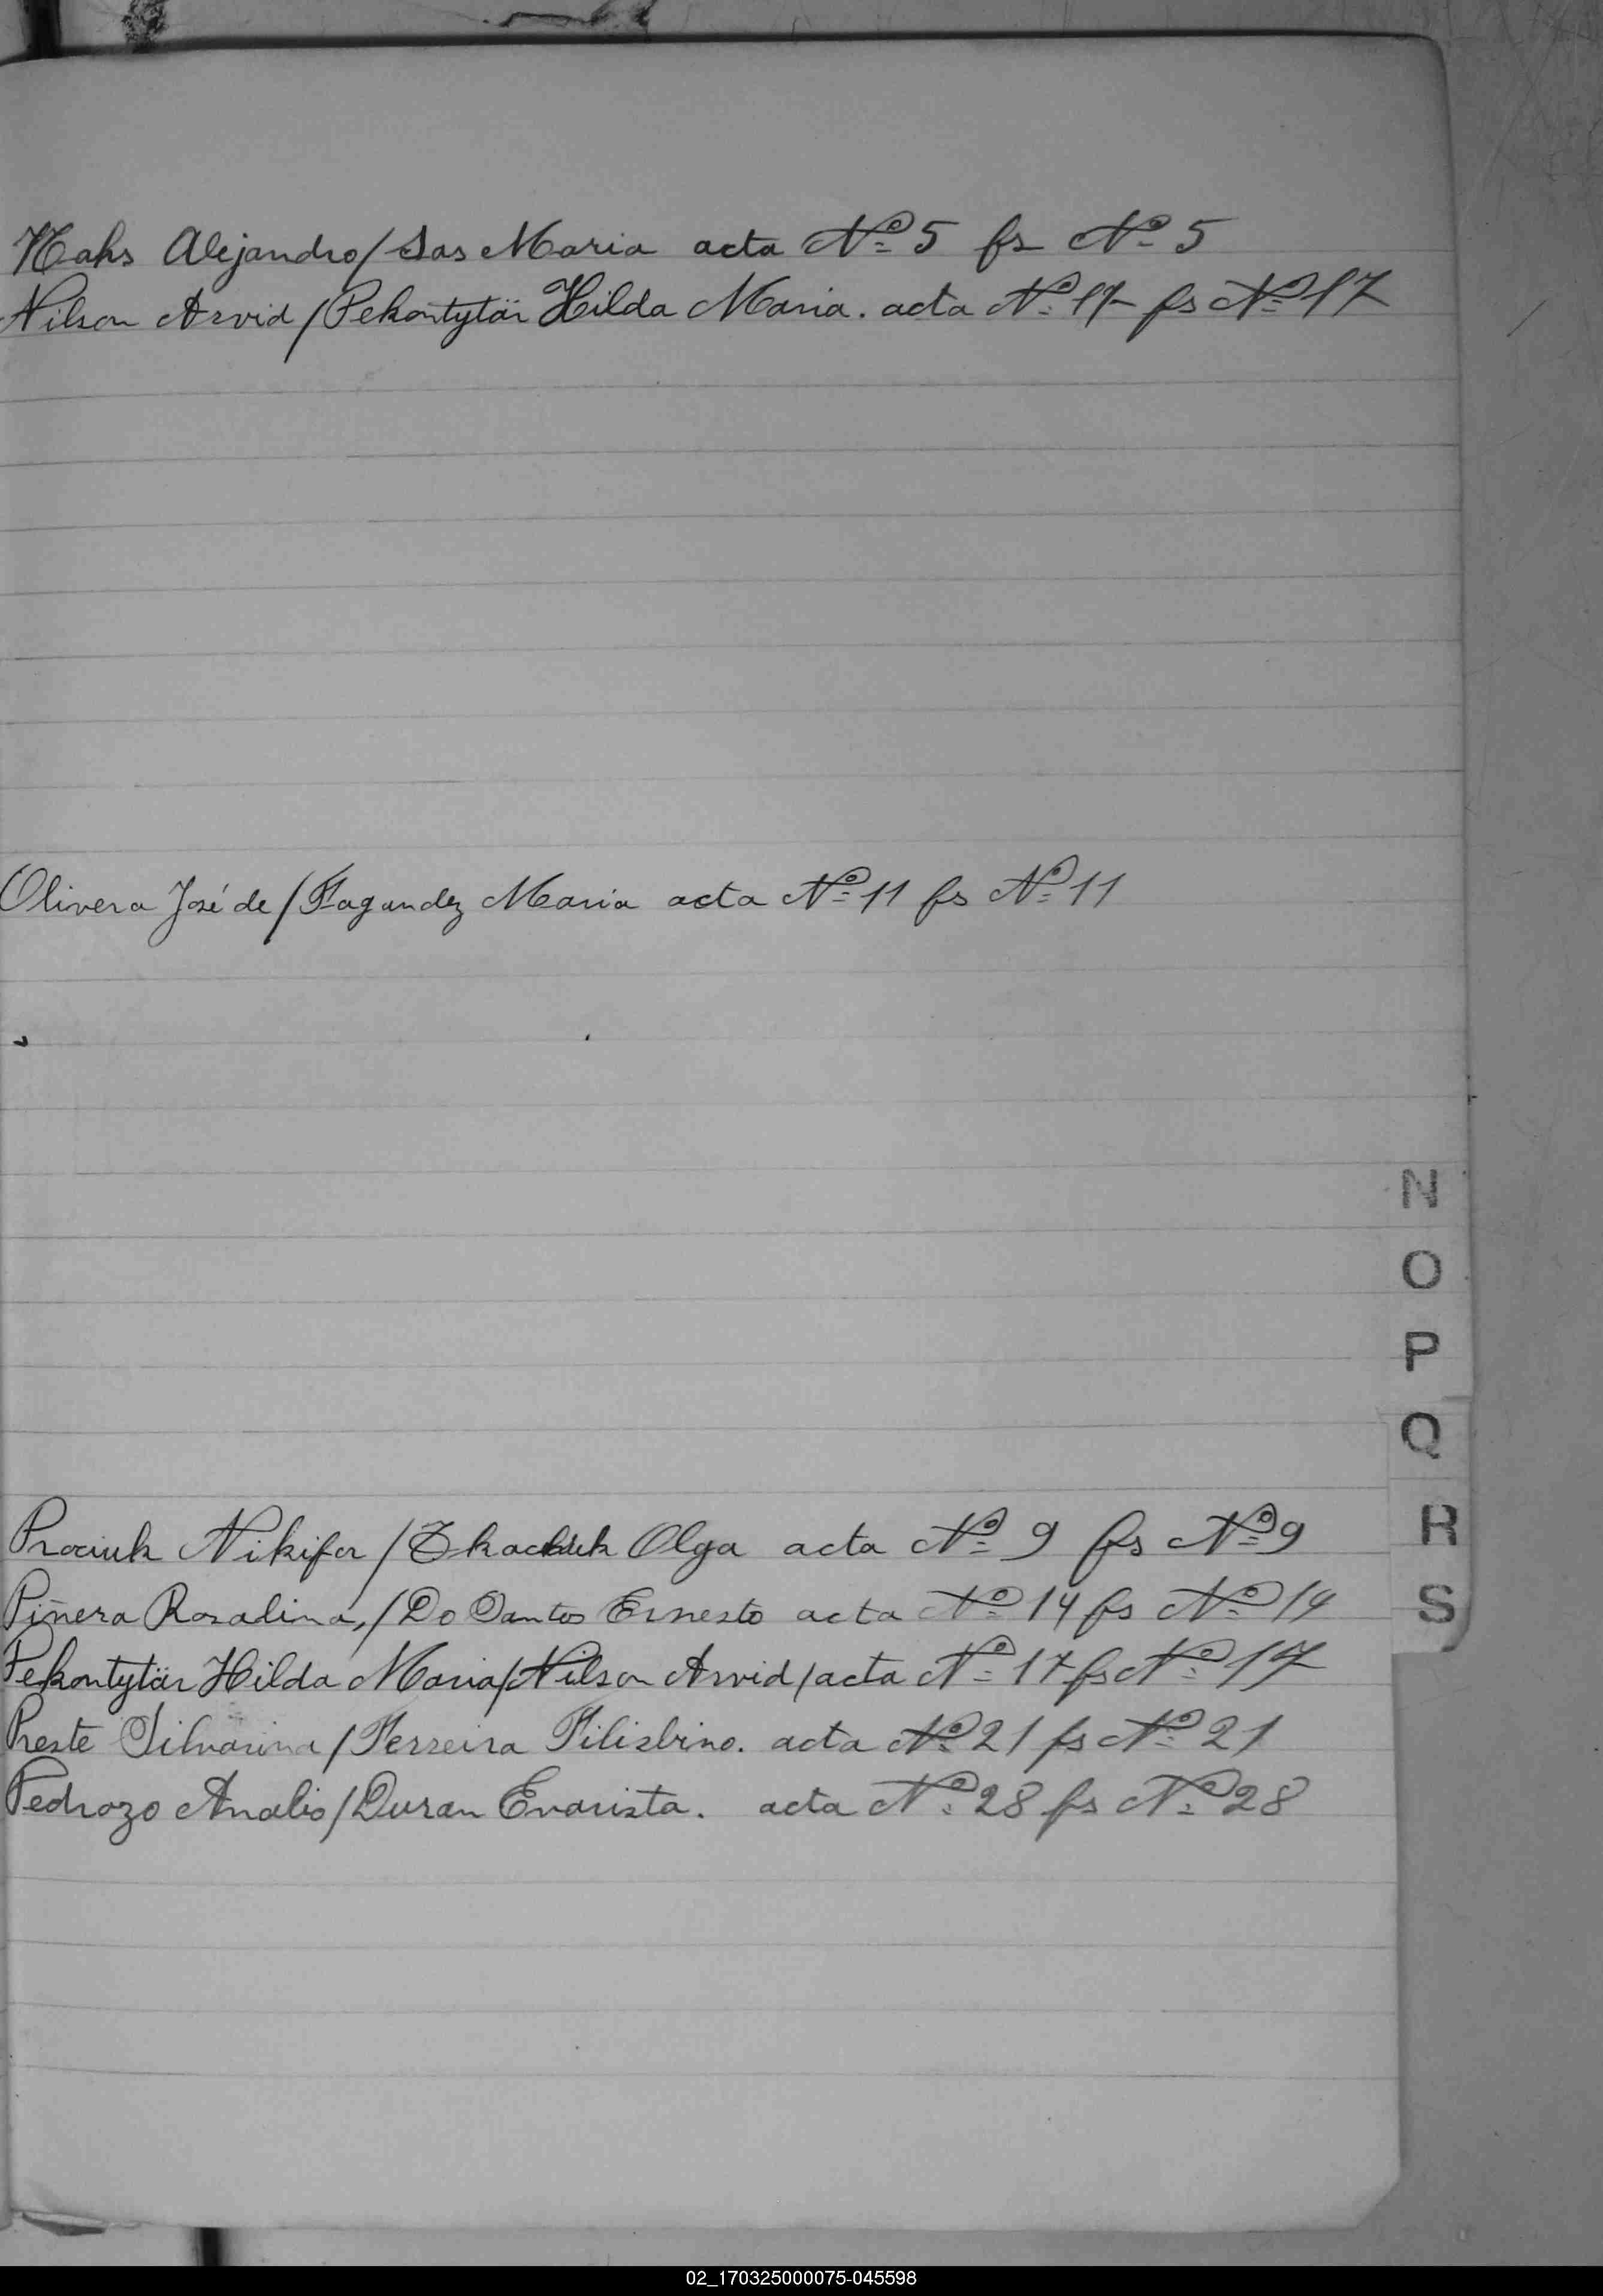 Nahs Alejandro/Sas Maria acta Nº 5 fs Nº 5
Nilson Arvid/Pekontytär Hilda Maria. acta Nº 17 fs Nº 17
Olivera José de/Fagundez Maria acta Nº 11 fs Nº 11
N
O
P
Q
Prociuk Nikifor/Tkachuk Olga acta Nº 9 fs Nº 9
R
Piñera Rosalina,/Do Santos Ernesto acta Nº 14 fs Nº 14
S
Pekontytär Hilda Maria/Nilson Arvid/acta Nº 17 fs Nº 17
Preste Silvarina/Ferreira Filisbino. acta Nº 21 fs Nº 21
Pedrozo Analio/Duran Evarista. acta Nº 28 fs Nº 28
02_170325000075-045598